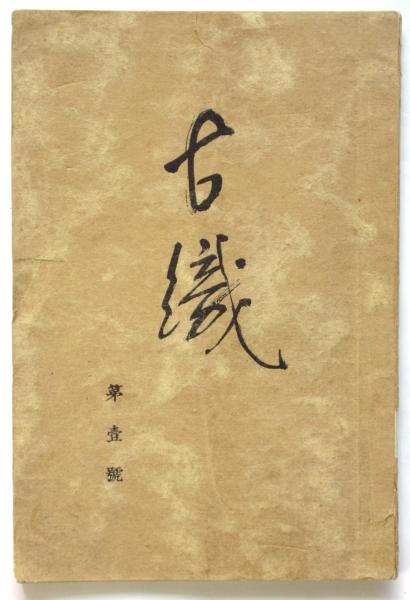 古織
第壹號